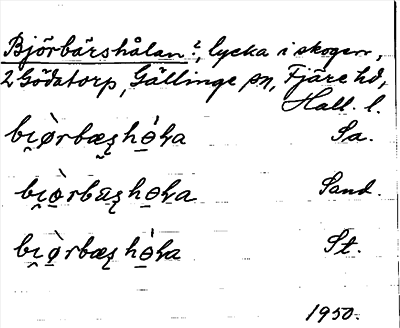 Björbärshålan?, lycka i skogen,
2 Gödatorp, Gällinge sn, Fjäre hd,
Hall. l.
bɩø̀rbæʂhө́ɦa Sa.
bɩø̀rbæʂhөɦa Sand.
bɩø̀rbæʂhө́ɦa St.
1950.